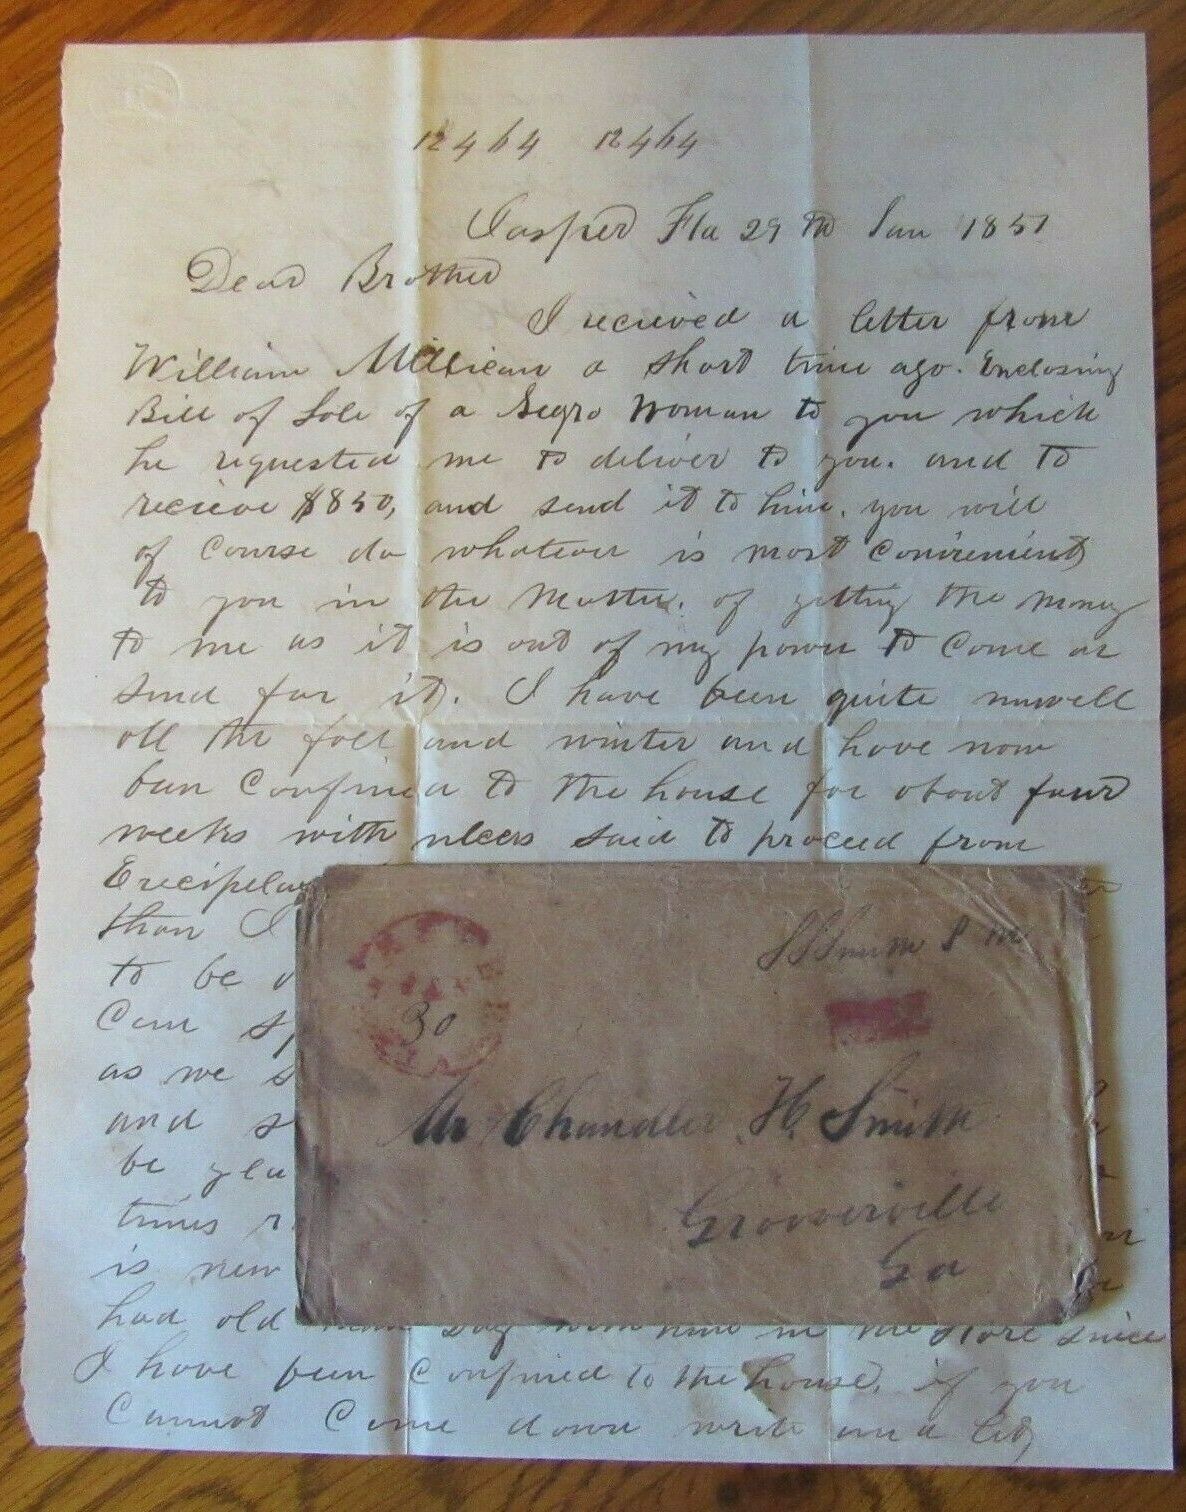 12464 12464
Jasper Fla 29th Jan 1857
Dear Brother
I recieved a letter from
William Millican a short time ago. Enclosing
Bill of Sale of a Negro Woman to you which
he requested me to deliver to you. and to
recieve $850, and send it to him. you will
of course do whatever is most convenient
to you in the matter. of getting the money
to me as it is out of my power to come or
send for it. I have been quite unwell
all the fall and winter and have now
been confined to the house for about four
weeks with ulcers said to proceed from
Erecipelas
than I
to be
Can
as we
and
be gla
times
is new
had old Day with him in the store since
I have been confined to the house. if you
cannot come down write and let
SSSmith P M
30
Mr Chandler H. Smith
Grooverville
Ga